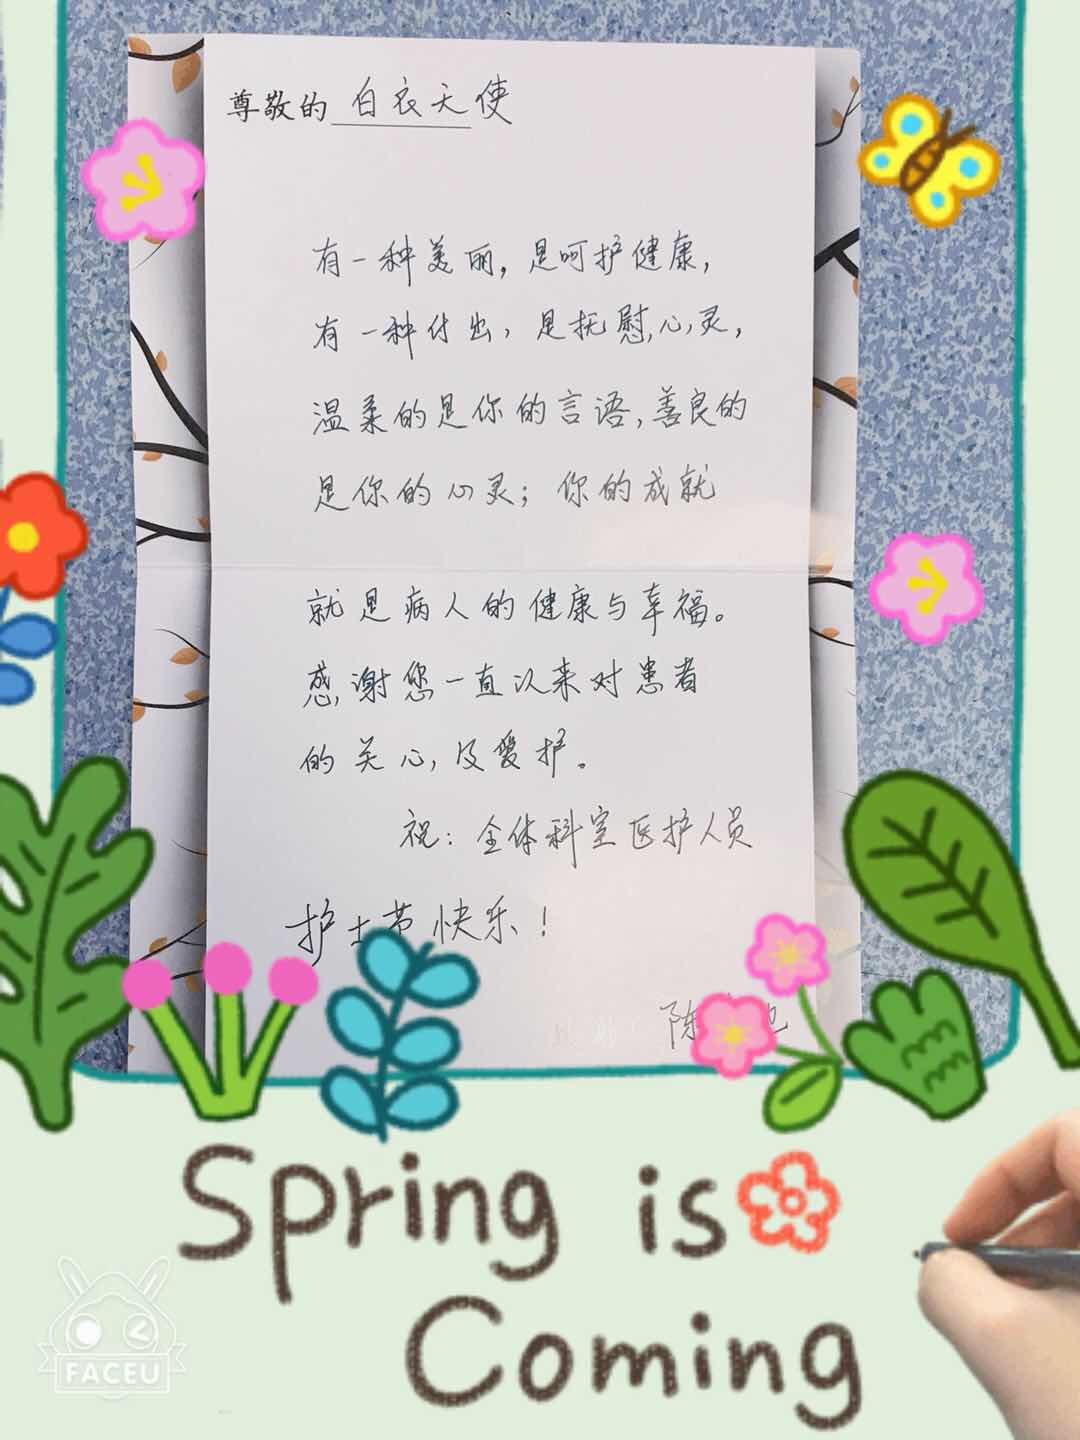 尊敬的 白衣天使
有一种美丽，是呵护健康，
有一种付出，是抚慰心灵，
温柔的是你的言语，善良的
是你的心灵；你的成就
就是病人的健康与幸福。
感谢您一直以来对患者
的关心及爱护。
祝：全体科室医护人员
护士节快乐！
陈
Spring is
Coming
FACEU